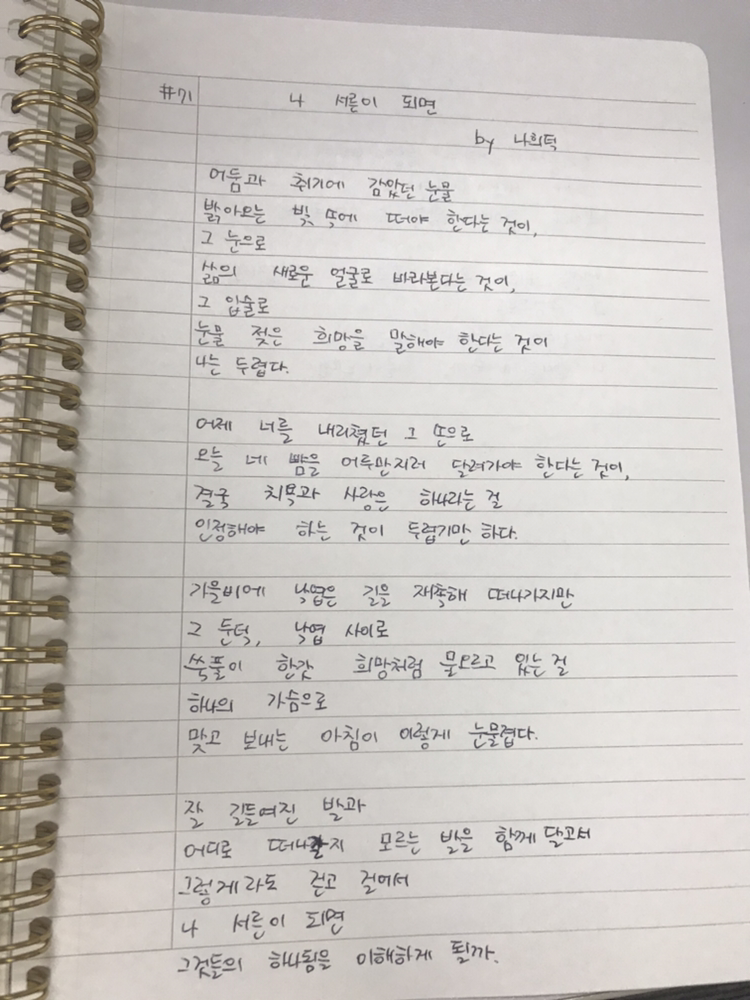 #71 나 서른이 되면
by 나희덕
어둠과 취기에 감았던 눈을
밝아오는 빛 속에 떠야 한다는 것이,
그 눈으로
삶의 새로운 얼굴로 바라본다는 것이,
그 입술로
눈물 젖은 희망을 말해야 한다는 것이
나는 두렵다.
어제 너를 내리쳤던 그 손으로
오늘 네 뺨을 어루만지러 달려가야 한다는 것이,
결국 치욕과 사랑은 하나라는 걸
인정해야 하는 것이 두렵기만 하다.
가을비에 낙엽은 길을 재촉해 떠나가지만
그 둔덕, 낙엽 사이로
쑥풀이 한갓 희망처럼 물오르고 있는 걸
하나의 가슴으로
맞고 보내는 아침이 이렇게 눈물겹다.
잘 길들여진 발과
어디로 떠나갈지 모르는 발을 함께 달고서
그렇게라도 걷고 걸어서
나 서른이 되면
그것들의 하나됨을 이해하게 될까.